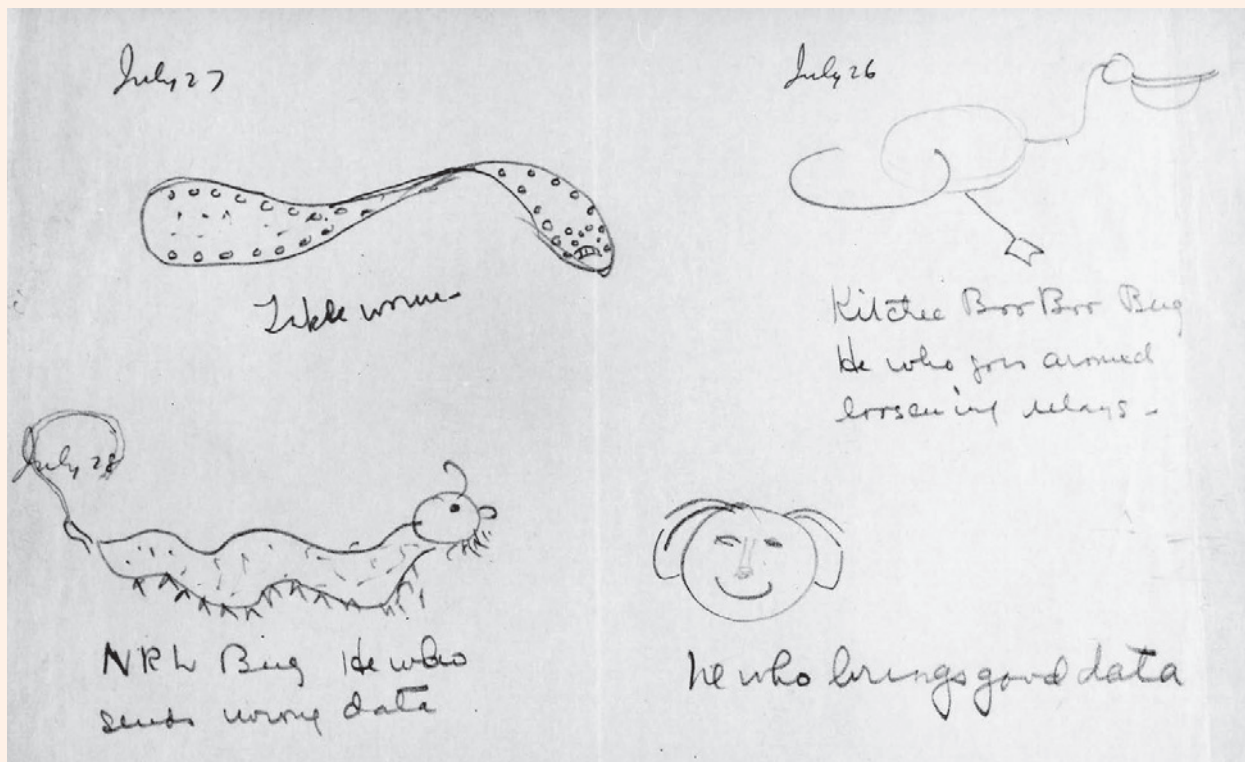 July 27
July 26
worm
Kitchee Boo Boo Bug
He who goes around
loosening relays -
July 28
NRL Bug He who
sends wrong data
he who brings good data